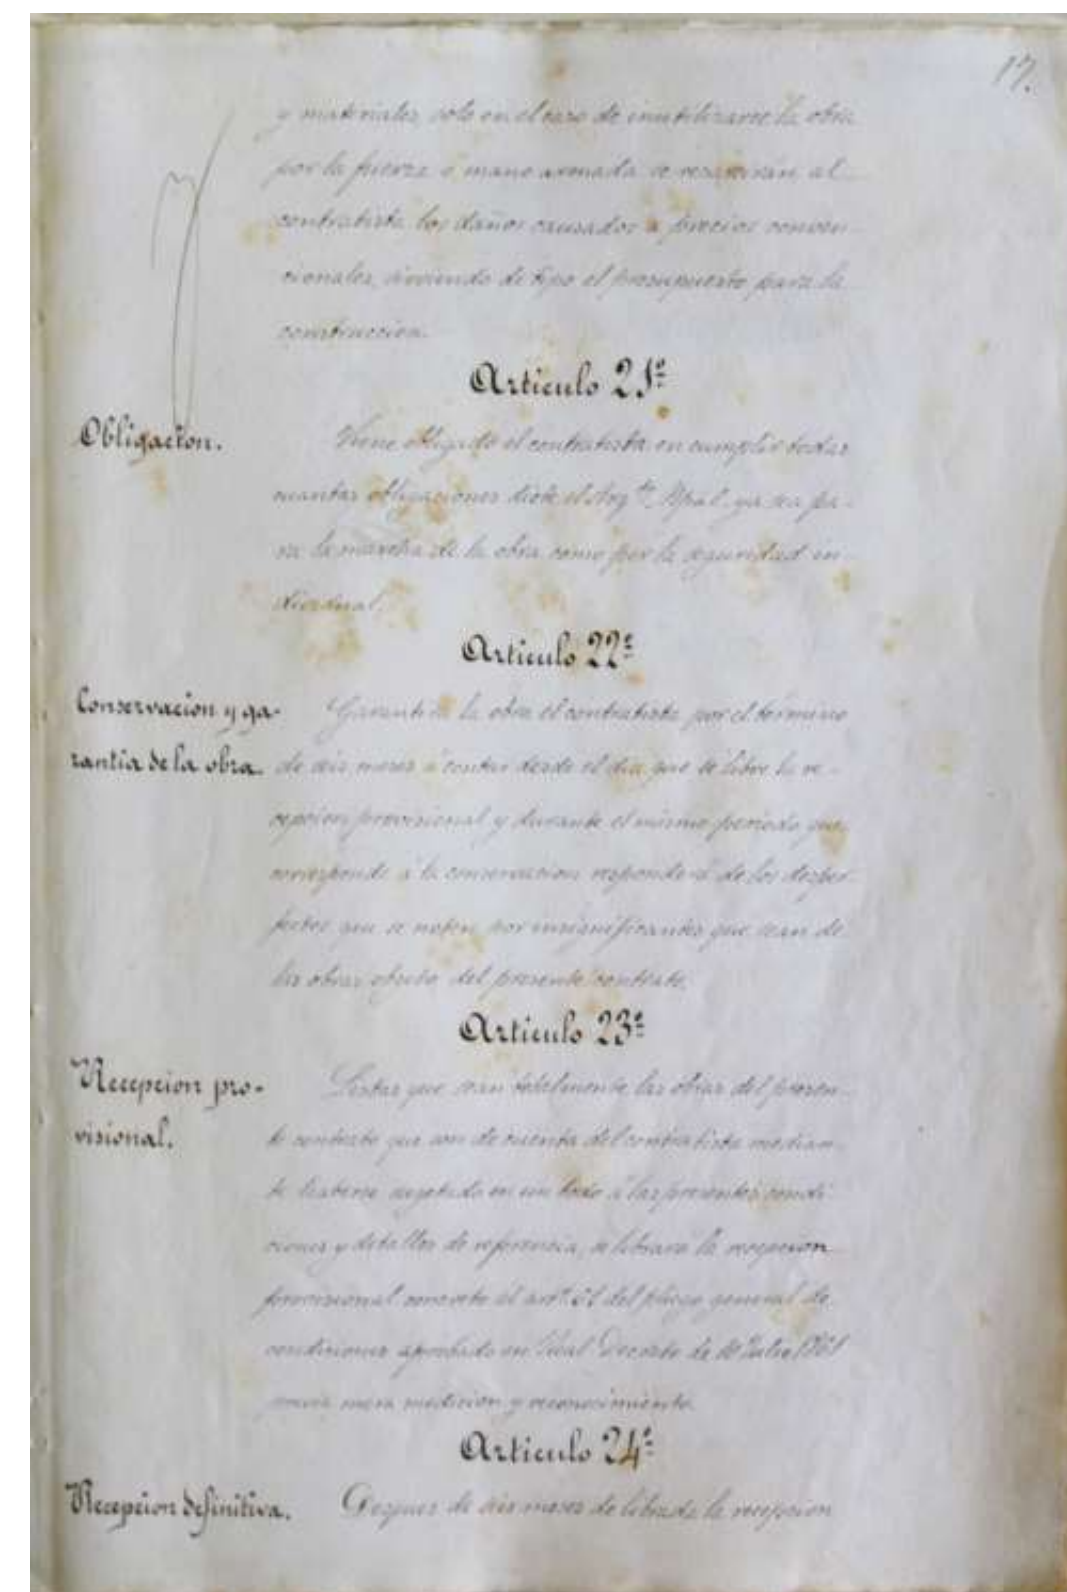 17.
y materiales, solo en el caso de inutilizarse la obra
por la fuerza o mano armada se resarcirán al
contratista los daños causados a precios conven-
cionales, sirviendo de tipo el presupuesto para la
construccion.
Articulo 21º
Obligacion.
Viene obligado el contratista en cumplir todas
cuantas obligaciones dicte el Arqto. Mpal. ya sea pa-
ra la marcha de la obra como por la seguridad in-
dividual.
Articulo 22º
Conservacion y ga-
rantia de la obra.
Garantirá la obra el contratista por el término
de seis meses á contar desde el dia que se libre la re-
cepcion provisional y durante el mismo periodo que
corresponde á la conservacion responderá de los desper-
fectos que se noten por insignificantes que sean de
las obras objeto del presente contrato.
Articulo 23º
Recepcion pro-
visional.
Listas que sean totalmente las obras del presen-
te contrato que son de cuenta del contratista median-
te haberse sujetado en un todo á las presentes condi-
ciones y detalles de referencia, se librará la recepcion
provisional al artº. del pliego general de
condiciones aprobado en Real Decreto de 10 Julio 1861
previa mera medicion y reconocimiento.
Articulo 24º
Recepcion definitiva.
Despues de seis meses de librada la recepcion